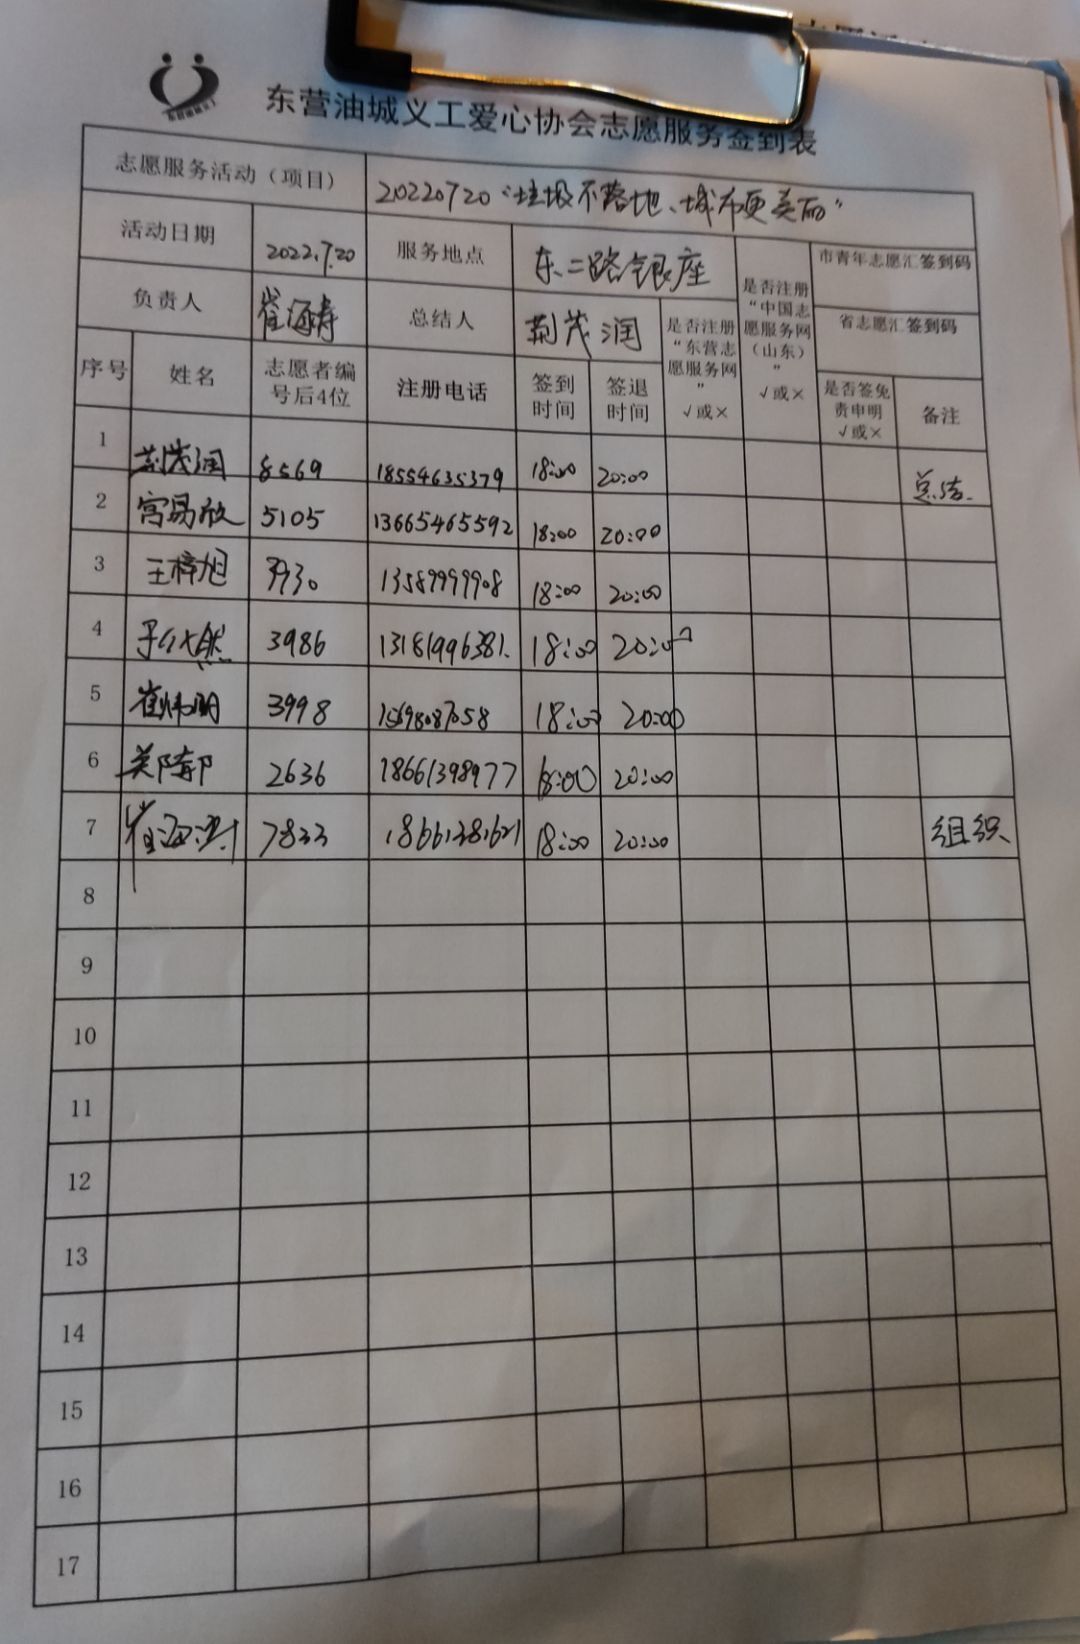 东营油城义工爱心协会志愿服务签到表
志愿服务活动（项目） 20220720“垃圾不落地、城市更美丽”
活动日期 2022.7.20 服务地点 东二路银座 是否注册“中国志愿服务网（山东）” √或× 市青年志愿汇签到码
负责人 崔海涛 总结人 荆茂润 是否注册“东营志愿服务网” √或× 省志愿汇签到码
序号 姓名 志愿者编号后4位 注册电话 签到时间 签退时间 是否签免责申明 √或× 备注
1 荆茂润 8569 18554635379 18:00 20:00 总结
2 宫易欣 5105 13665465592 18:00 20:00
3 王梓旭 18:00 20:00
4 3986 13181996381. 18:00 20:00
5 3998 18:00 20:00
6 2636 18661398977 18:00 20:00
7 崔海涛 7833 18661381621 18:00 20:00 组织
8
9
10
11
12
13
14
15
16
17